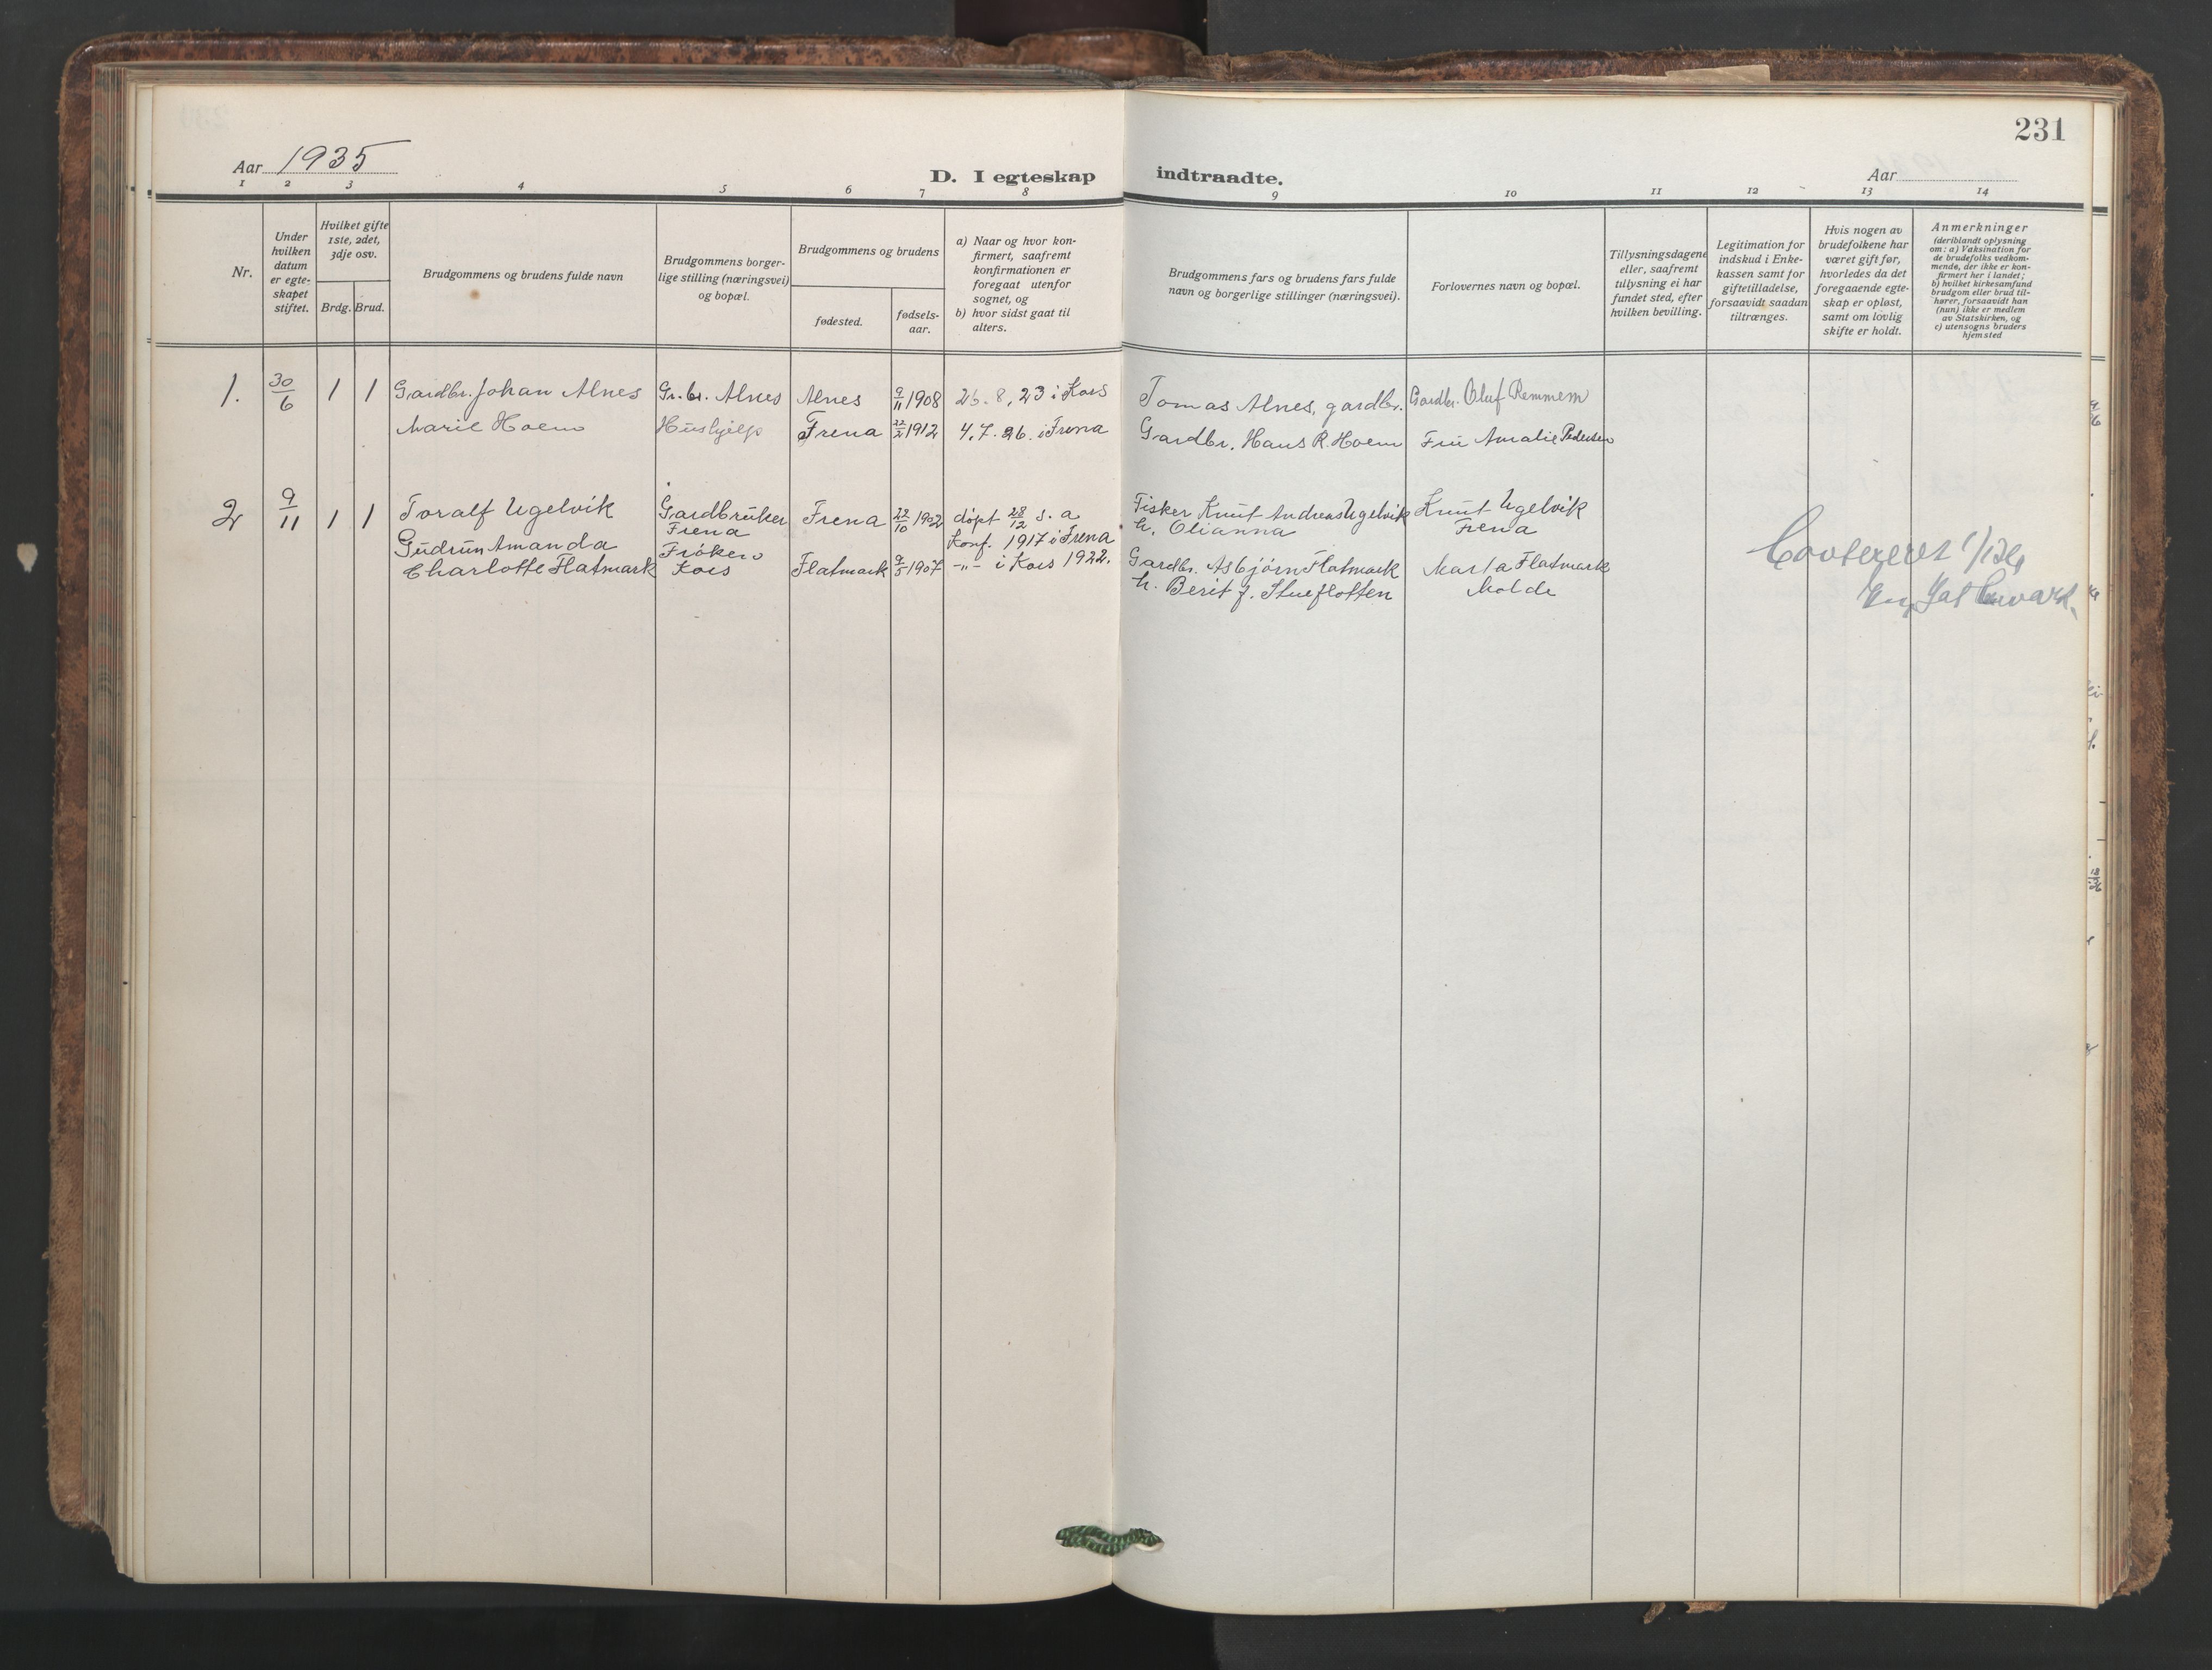 231
Aar 1935
D. I egteskap indtraadte.
Aar
1 2 3 4 5 6 7 8 9 10 11 12 13 14
Nr.
Under
hvilken
datum
er egte-
skapet
stiftet.
Hvilket gifte
1ste, 2det,
3dje osv.
Brdg. Brud.
Brudgommens og brudens fulde navn
Brudgommens borger-
lige stilling (næringsvei)
og bopæl.
Brudgommens og brudens
fødested.
fødsels-
aar.
a) Naar og hvor kon-
firmert, saafremt
konfirmationen er
foregaat utenfor
sognet, og
b) hvor sidst gaat til
alters.
Brudgommens fars og brudens fars fulde
navn og borgerlige stillinger (næringsvei).
Forlovernes navn og bopæl.
Tillysningsdagene
eller, saafremt
tillysning ei har
fundet sted, efter
hvilken bevilling.
Legitimation for
indskud i Enke-
kassen samt for
giftetilladelse,
forsaavidt saadan
tiltrænges.
Hvis nogen av
brudefolkene har
været gift før,
hvorledes da det
foregaaende egte-
skap er opløst,
samt om lovlig
skifte er holdt.
Anmerkninger
(deriblandt oplysning
om: a) Vaksination for
de brudefolks vedkom-
mende, der ikke er kon-
firmert her i landet;
b) hvilket kirkesamfund
brudgom eller brud til-
hører, forsaavidt han
(hun) ikke er medlem
av Statskirken, og
c) utensogns bruders
hjemsted
1. 30/6 1 1 Gardbr. Johan Alnes Gr.br. Alnes Alnes 9/11 1908 26.8.23 i Kors Tomas Alnes, gardbr. Gardbr. Oluf Remmem
Marie Hoem Hushjelp Frena 22/2 1912 4.7.26. i Frena Gardbr. Hans R. Hoem Fru Amalie Pedersen
2 9/11 1 1 Toralf Ugelvik Gardbruker Frena 22/10 1902 døpt 28/12 s. a Fisker Knut Andreas Ugelvik Knut Ugelvik
Frena konf. 1917 i Frena h. Olianna Frena
Gudrun Amanda Frøken
Charlotte Flatmark Kors Flatmark 9/5 1907 -"- i Kors 1922. Gardbr. Asbjørn Flatmark Marta Flatmark
h. Berit f. Stueflotten Molde